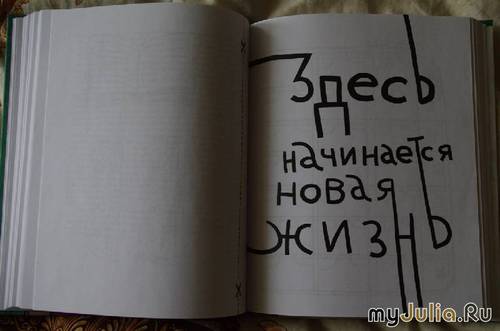 Здесь
начинается
новая
жизнь
myJulia.Ru